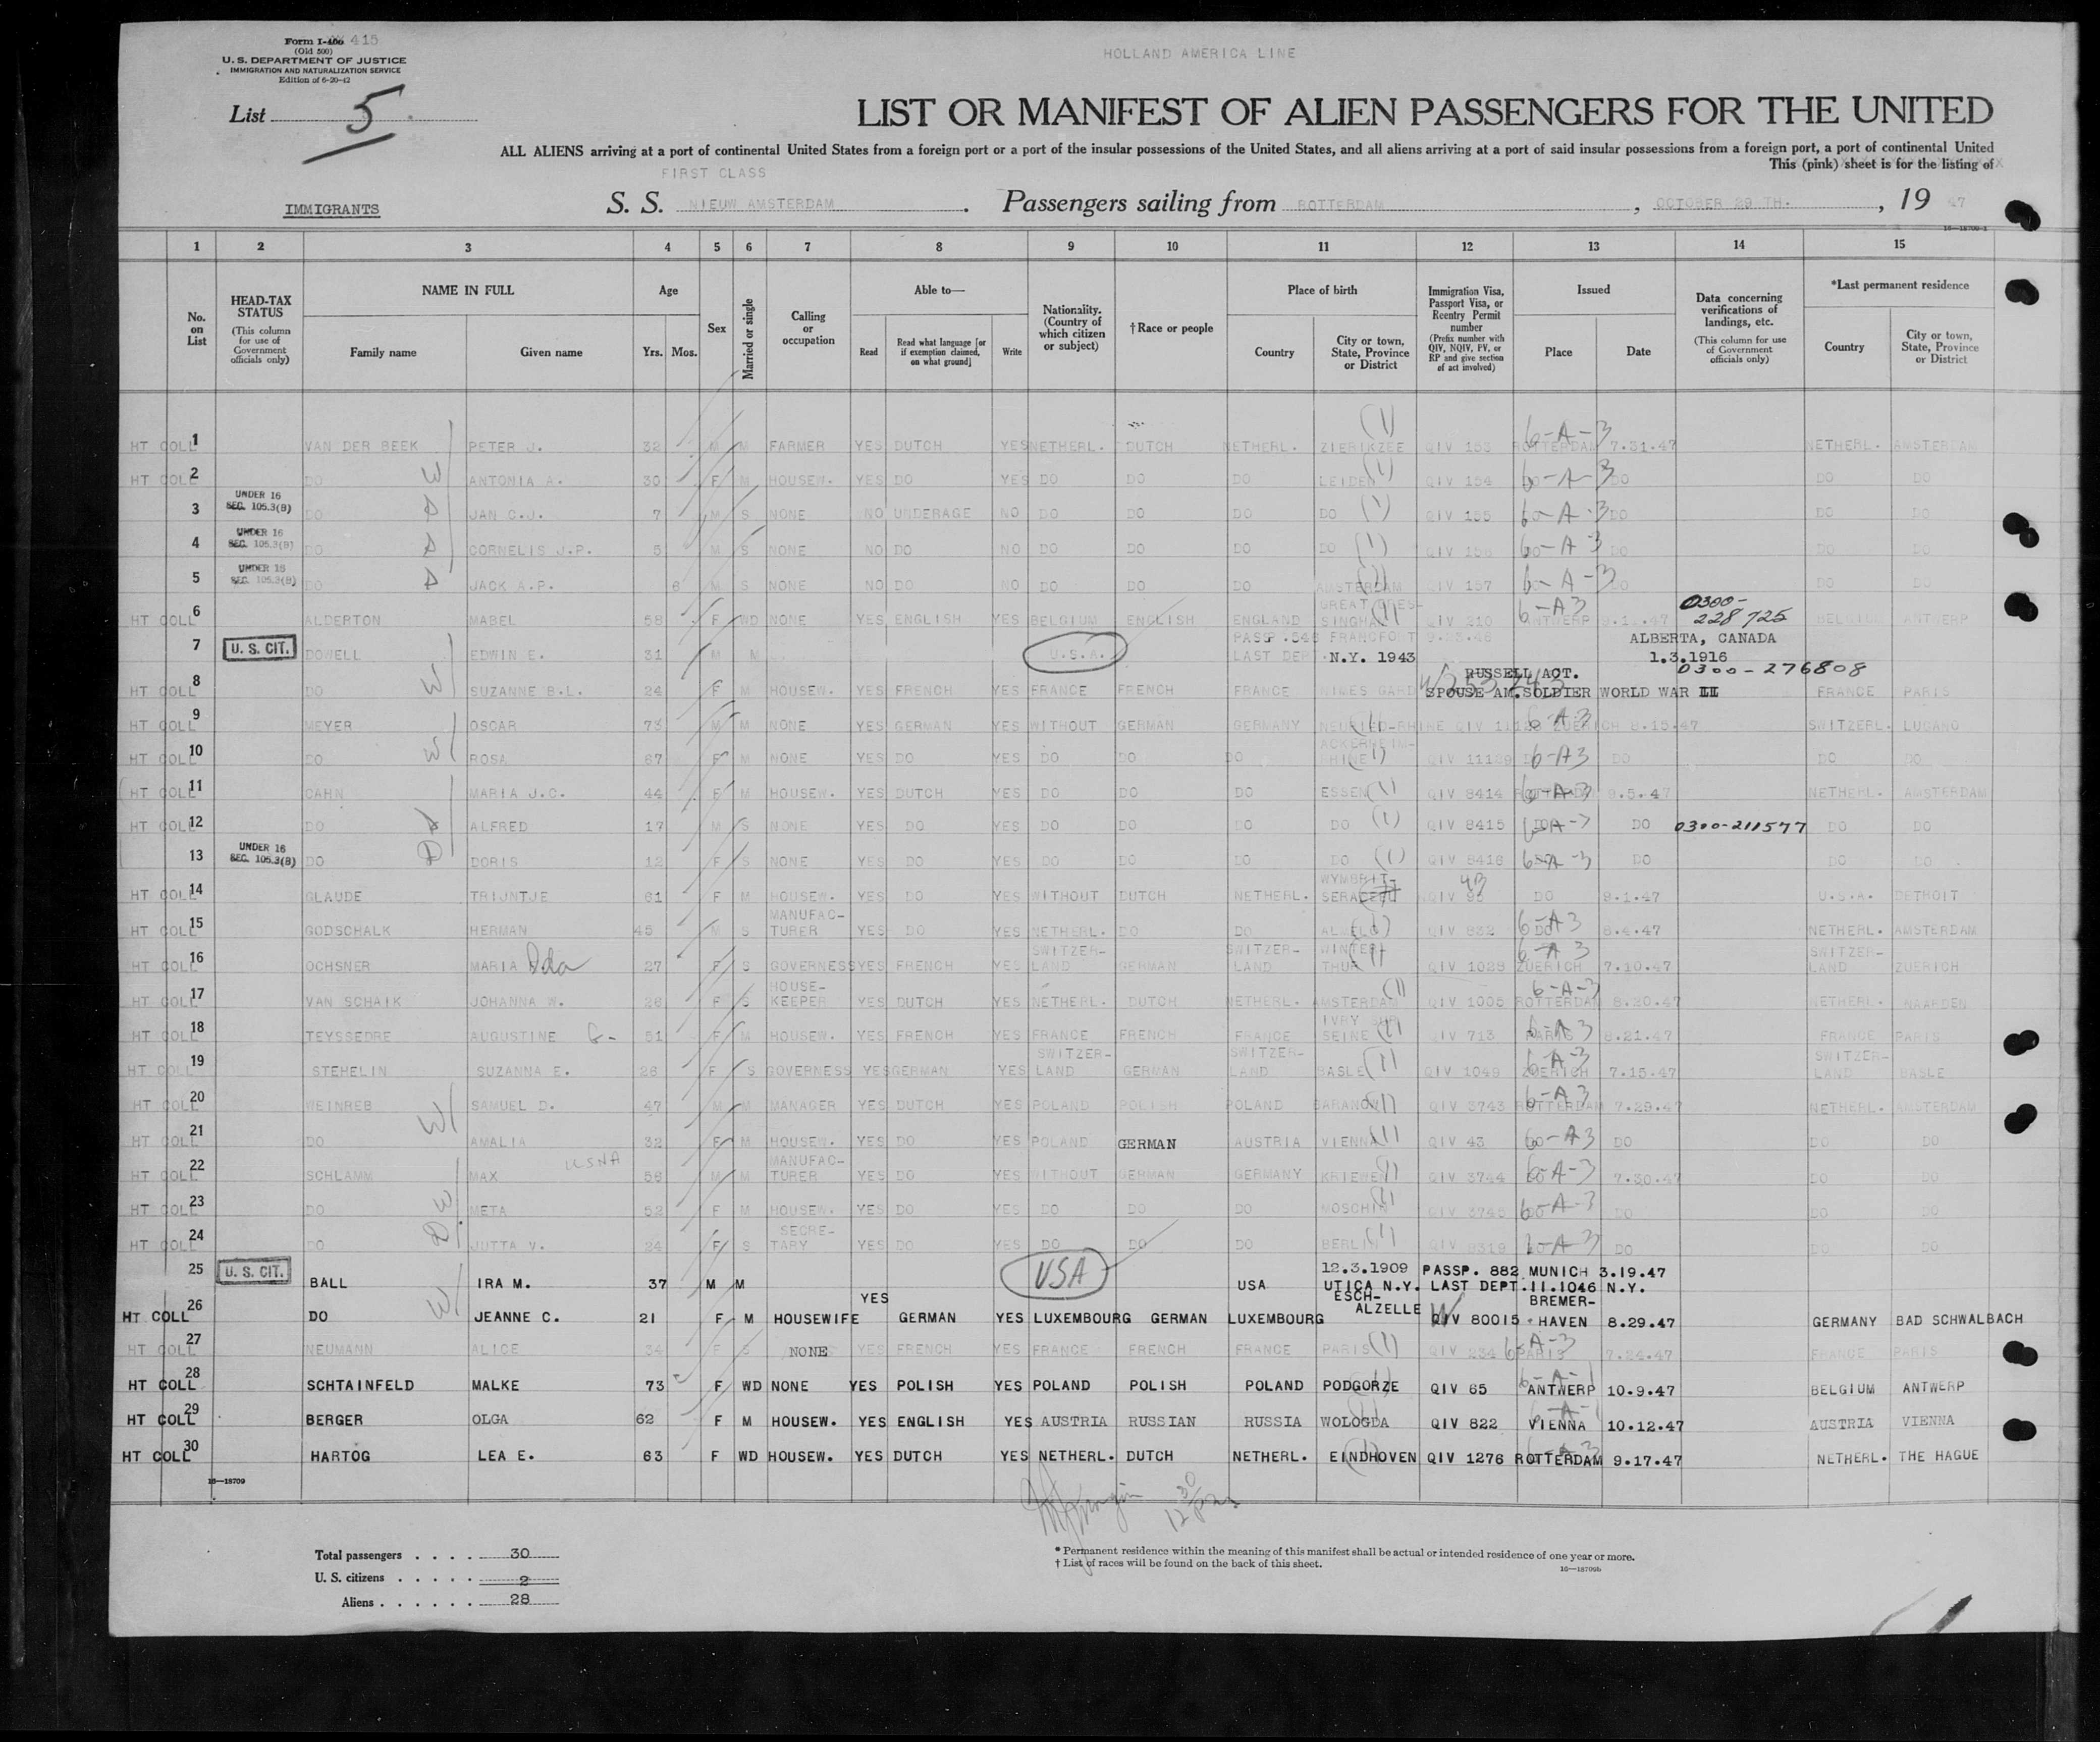 Form I-400 415
(Old 500)
U. S. DEPARTMENT OF JUSTICE
IMMIGRATION AND NATURALIZATION SERVICE
Edition of 6-20-42
HOLLAND AMERICA LINE
List 5
LIST OR MANIFEST OF ALIEN PASSENGERS FOR THE UNITED
ALL ALIENS arriving at a port of continental United States from a foreign port or a port of the insular possessions of the United States, and all aliens arriving at a port of said insular possessions from a foreign port, a port of continental United
This (pink) sheet is for the listing of
FIRST CLASS
IMMIGRANTS S. S. NIEUW AMSTERDAM. Passengers sailing from ROTTERDAM, OCTOBER 29 TH., 19 47
1 2 3 4 5 6 7 8 9 10 11 12 13 14 15
No. on List
HEAD-TAX STATUS (This column for use of Government officials only)
NAME IN FULL Family name Given name
Age Yrs. Mos.
Sex
Married or single
Calling or occupation
Able to— Read Read what language [or if exemption claimed, on what ground] Write
Nationality. (Country of which citizen or subject)
†Race or people
Place of birth Country City or town, State, Province or District
Immigration Visa, Passport Visa, or Reentry Permit number (Prefix number with QIV, NQIV, PV, or RP and give section of act involved)
Issued Place Date
Data concerning verifications of landings, etc. (This column for use of Government officials only)
*Last permanent residence Country City or town, State, Province or District
HT COLL 1 VAN DER BEEK PETER J. 32 M M FARMER YES DUTCH YES NETHERL. DUTCH NETHERL. ZIERIKZEE (1) QIV 153 ROTTERDAM 6-A-3 7.31.47 NETHERL. AMSTERDAM
HT COLL 2 DO W ANTONIA A. 30 F M HOUSEW. YES DO YES DO DO DO LEIDEN (1) QIV 154 6-A-3 DO DO DO
3 UNDER 16 SEC. 105.3(B) DO JAN C.J. 7 M S NONE NO UNDERAGE NO DO DO DO DO (1) QIV 155 6-A-3 DO DO DO
4 UNDER 16 SEC. 105.3(B) DO CORNELIS J.P. 5 M S NONE NO DO NO DO DO DO DO (1) QIV 156 6-A-3 DO DO DO
5 UNDER 16 SEC. 105.3(B) DO JACK A.P. 6 M S NONE NO DO NO DO DO DO AMSTERDAM (1) QIV 157 6-A-3 DO DO DO
HT COLL 6 ALDERTON MABEL 58 F WD NONE YES ENGLISH YES BELGIUM ENGLISH ENGLAND (1) QIV 210 ANTWERP 6-A3 0300-228725 BELGIUM ANTWERP
7 U. S. CIT. DOWELL EDWIN E. 31 M M U.S.A. PASS. FRANCFORT LAST DEP. N.Y. 1943 ALBERTA, CANADA 1.3.1916
HT COLL 8 DO W SUZANNE B.L. 24 F M HOUSEW. YES FRENCH YES FRANCE FRENCH FRANCE NIMES GARD RUSSELL ACT. 0300-276808 SPOUSE AM. SOLDIER WORLD WAR II FRANCE PARIS
HT COLL 9 MEYER OSCAR 73 M M NONE YES GERMAN YES WITHOUT GERMAN GERMANY (1) QIV ZUERICH 6-A-3 8.15.47 SWITZERL. LUGANO
HT COLL 10 DO W ROSA 67 F M NONE YES DO YES DO DO DO (1) QIV 11129 6-A3 DO DO DO
HT COLL 11 CAHN MARIA J.C. 44 F M HOUSEW. YES DUTCH YES DO DO DO ESSEN (1) QIV 8414 6-A-3 9.5.47 NETHERL. AMSTERDAM
HT COLL 12 DO ALFRED 17 M S NONE YES DO YES DO DO DO DO (1) QIV 8415 DO DO 0300-211577 DO DO
13 UNDER 16 SEC. 105.3(B) DO D DORIS 12 F S NONE YES DO YES DO DO DO DO (1) QIV 8416 6-A-3 DO DO DO
HT COLL 14 GLAUDE TRIJNTJE 61 F M HOUSEW. YES DO YES WITHOUT DUTCH NETHERL. 43 DO 9.1.47 U.S.A. DETROIT
HT COLL 15 GODSCHALK HERMAN 45 M S MANUFAC-TURER YES DO YES NETHERL. DO DO ALMELO (1) QIV 832 DO 6-A3 8.4.47 NETHERL. AMSTERDAM
HT COLL 16 OCHSNER MARIA Ida 27 F S GOVERNESS YES FRENCH YES SWITZER-LAND GERMAN SWITZER-LAND WINTER-THUR (1) QIV 1028 ZUERICH 6-A 3 7.10.47 SWITZER-LAND ZUERICH
HT COLL 17 VAN SCHAIK JOHANNA W. 26 F S HOUSE-KEEPER YES DUTCH YES NETHERL. DUTCH NETHERL. AMSTERDAM (1) QIV 1005 ROTTERDAM 6-A-3 8.20.47 NETHERL. NAARDEN
HT COLL 18 TEYSSEDRE AUGUSTINE G- 51 F M HOUSEW. YES FRENCH YES FRANCE FRENCH FRANCE IVRY SUR SEINE (1) QIV 713 PARIS 6-A3 8.21.47 FRANCE PARIS
HT COLL 19 STEHELIN SUZANNA E. 26 F S GOVERNESS YES GERMAN YES SWITZER-LAND GERMAN SWITZER-LAND BASLE (1) QIV 1049 ZUERICH 6-A-3 7.15.47 SWITZER-LAND BASLE
HT COLL 20 WEINREB SAMUEL D. 47 M M MANAGER YES DUTCH YES POLAND POLISH POLAND BARANOW (1) QIV 3743 ROTTERDAM 6-A 3 7.29.47 NETHERL. AMSTERDAM
HT COLL 21 DO W AMALIA 32 F M HOUSEW. YES DO YES POLAND GERMAN AUSTRIA VIENNA (1) QIV 43 6-A3 DO DO DO
HT COLL 22 SCHLAMM MAX USNA 56 M M MANUFAC-TURER YES DO YES WITHOUT GERMAN GERMANY KRIEWEN (1) QIV 3744 6-A-3 7.30.47 DO DO
HT COLL 23 DO W META 52 F M HOUSEW. YES DO YES DO DO DO MOSCHIN (1) QIV 3745 6-A-3 DO DO DO
HT COLL 24 DO D JUTTA V. 24 F S SECRE-TARY YES DO YES DO DO DO BERLIN (1) QIV 6-A3 DO DO DO
25 U. S. CIT. BALL IRA M. 37 M M USA USA 12.3.1909 UTICA N.Y. PASSP. 882 MUNICH 3.19.47 LAST DEPT. 11.1046 N.Y.
HT COLL 26 DO W JEANNE C. 21 F M HOUSEWIFE YES GERMAN YES LUXEMBOURG GERMAN LUXEMBOURG ESCH-ALZELLE QIV 80015 BREMER-HAVEN 8.29.47 GERMANY BAD SCHWALBACH
HT COLL 27 NEUMANN ALICE 34 F S NONE YES FRENCH YES FRANCE FRENCH FRANCE PARIS (1) QIV 234 PARIS 6-A-3 7.24.47 FRANCE PARIS
HT COLL 28 SCHTAINFELD MALKE 73 F WD NONE YES POLISH YES POLAND POLISH POLAND PODGORZE QIV 65 ANTWERP 10.9.47 BELGIUM ANTWERP
HT COLL 29 BERGER OLGA 62 F M HOUSEW. YES ENGLISH YES AUSTRIA RUSSIAN RUSSIA WOLOGDA QIV 822 VIENNA 10.12.47 AUSTRIA VIENNA
HT COLL 30 HARTOG LEA E. 63 F WD HOUSEW. YES DUTCH YES NETHERL. DUTCH NETHERL. EINDHOVEN (1) QIV 1276 ROTTERDAM 9.17.47 NETHERL. THE HAGUE
16—18709
Total passengers . . . . 30
U. S. citizens . . . . . 2
Aliens . . . . . . 28
* Permanent residence within the meaning of this manifest shall be actual or intended residence of one year or more.
† List of races will be found on the back of this sheet.
16—18709b